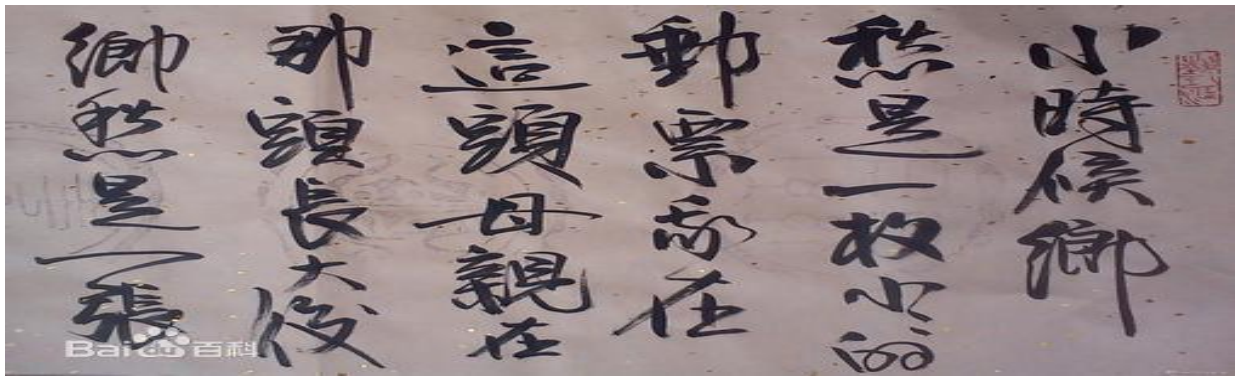 小時候鄉
愁是一枚小的
郵票我在
這頭母親在
那頭長大後
鄉愁是一張
Bai 百科